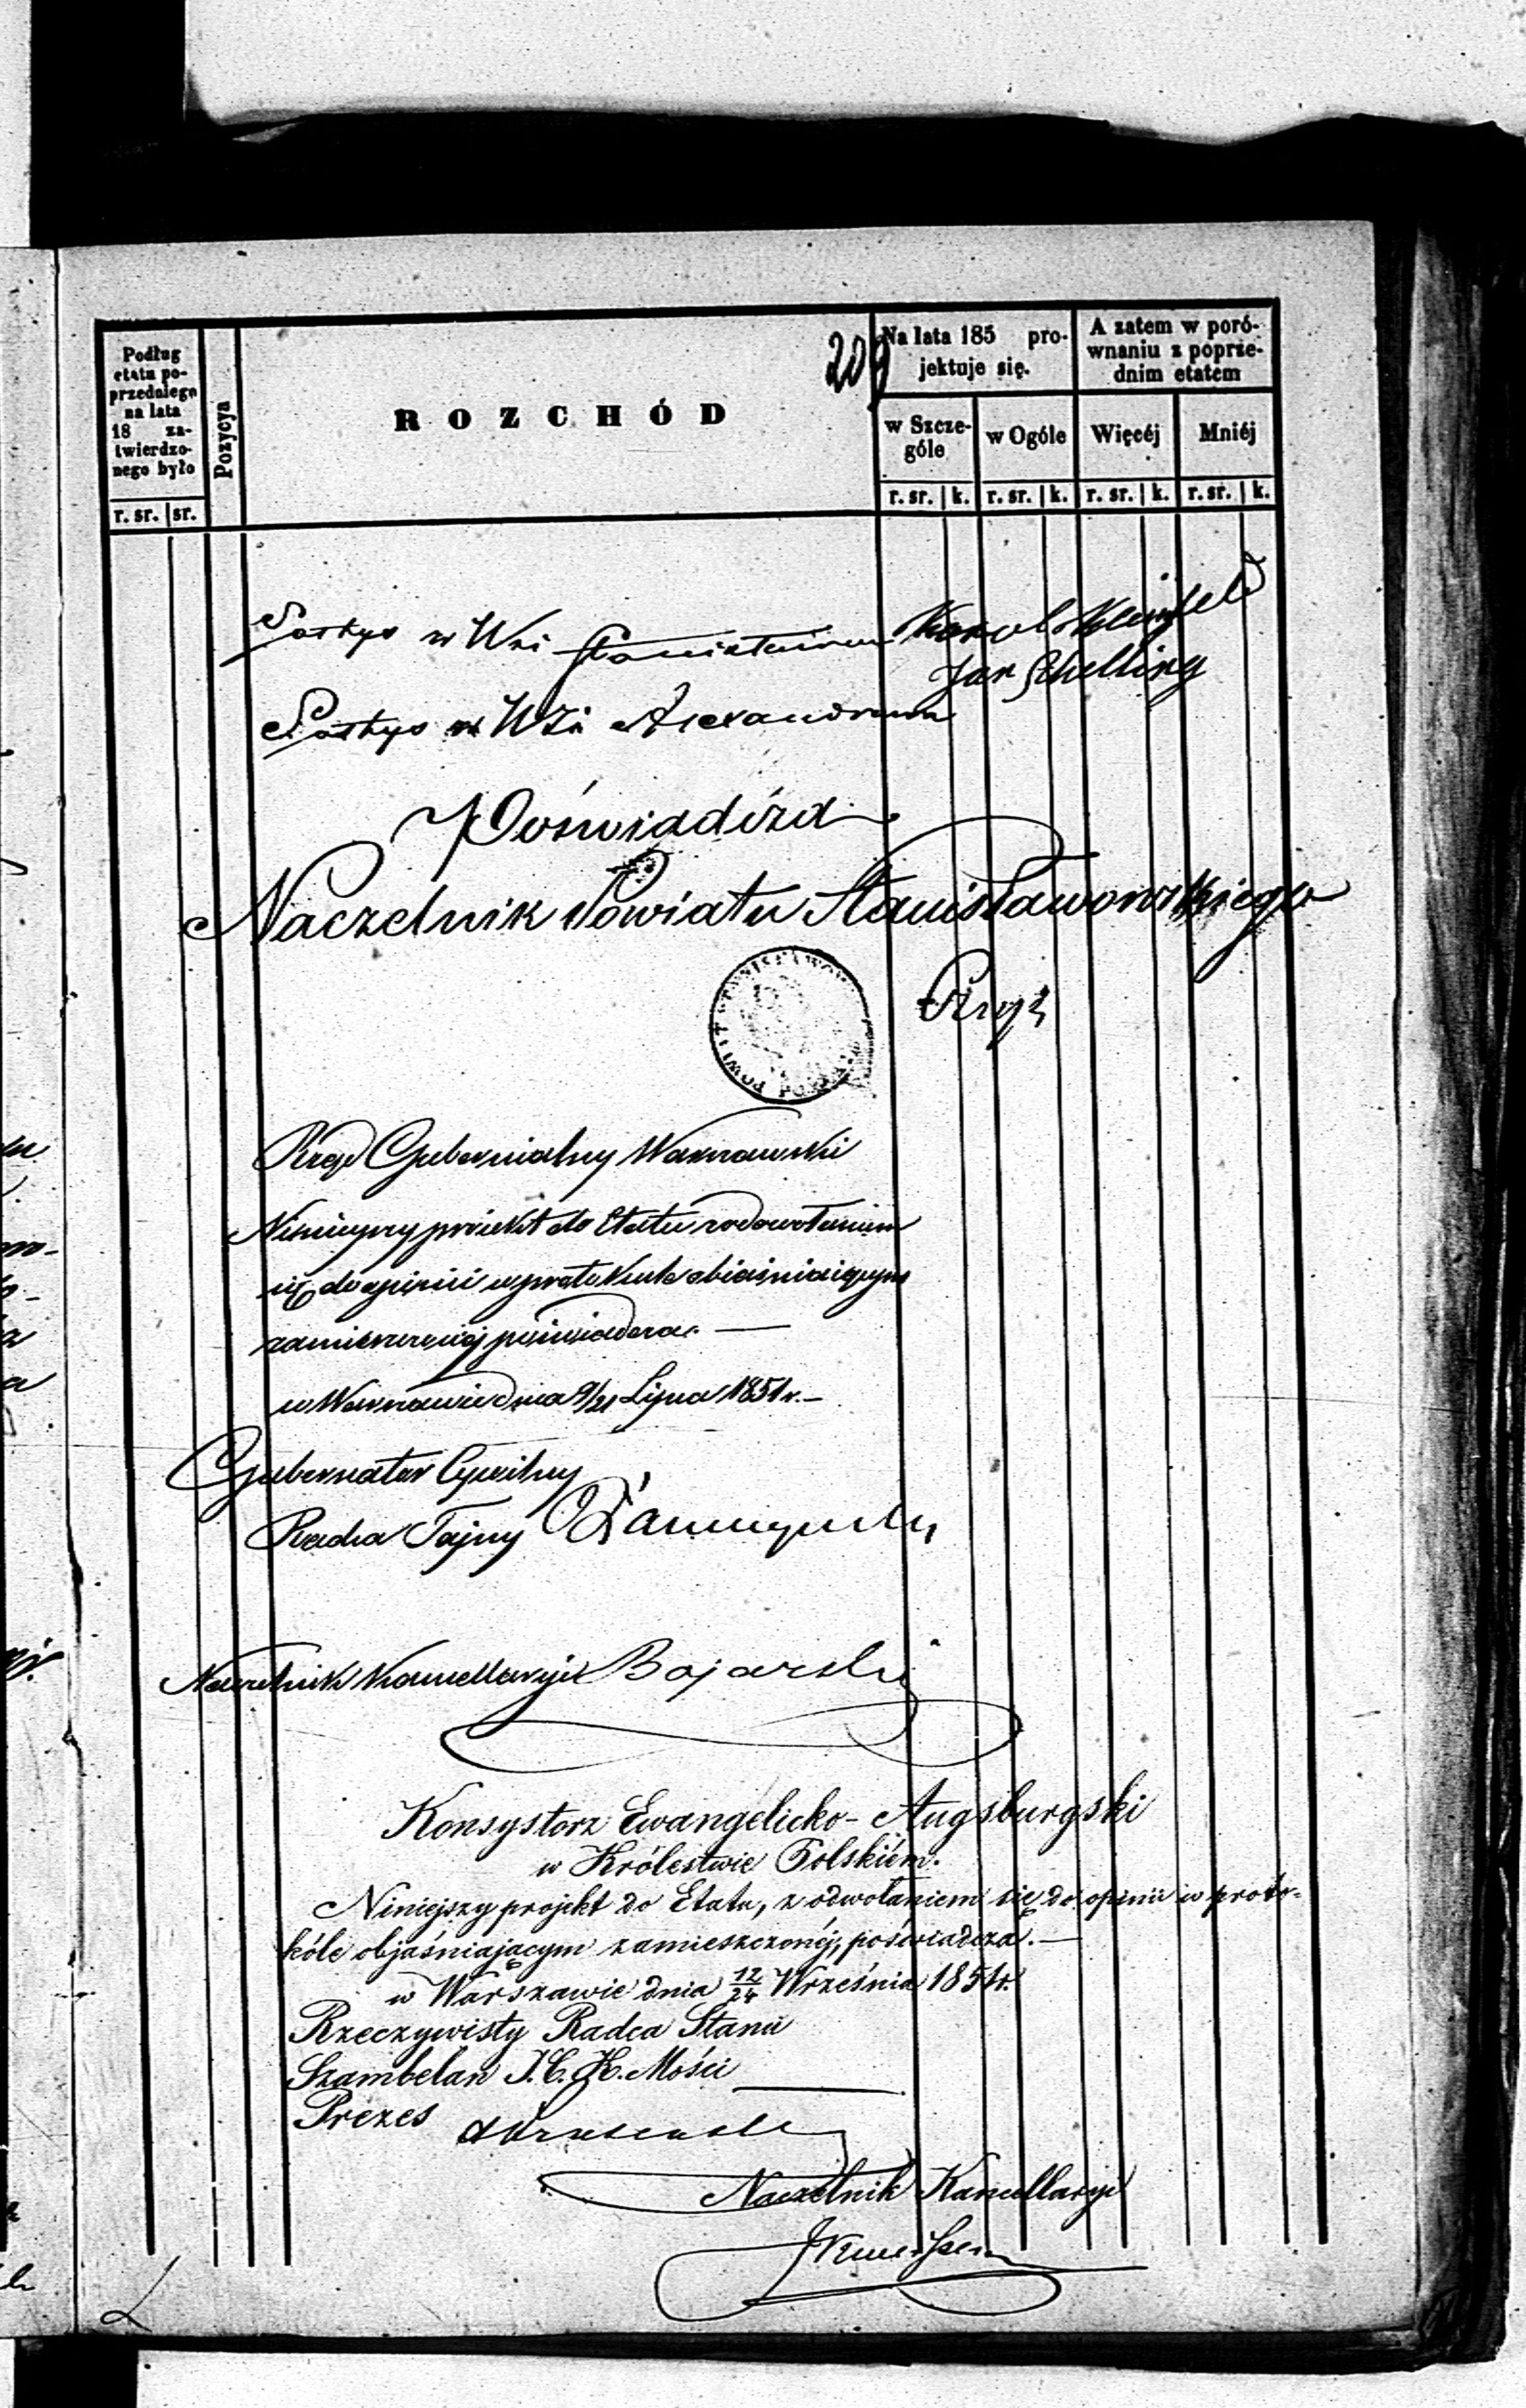 209
Podług
etatu po-
przedniego
na lata
18 za-
twierdzo-
nego było
r. sr. sr.
Pozycya
ROZCHÓD
Na lata 185 pro-
jektuje się.
w Szcze-
góle
w Ogóle
r. sr. k. r. sr. k.
A zatem w poró-
wnaniu z poprze-
dnim etatem
Więcéj Mniéj
r. sr. k. r. sr. k.
Sołtys w Wsi Karol
Jan Schelling
Sołtys w Wsi Alexandrowa
Poświadcza
Naczelnik Powiatu Stanisławowskiego
Rząd Gubernialny Warszawski
Niniejszy projekt do Etatu z odwołaniem
się do opinii w protokule obiaśniaiącym
zamieszczonéj poświadcza. —
w Warszawie dnia 9/21 Lipca 1851 r. —
Gubernator Cywilny
Radca Tajny
Naczelnik Kancellaryi Bojarski
Konsystorz Ewangelicko-Augsburgski
w Królestwie Polskiém.
Niniejszy projekt do Etatu, z odwołaniem się do opinii w proto-
kóle objaśniającym zamieszczonéj, poświadcza. —
w Warszawie dnia 12/24 Września 1851 r.
Rzeczywisty Radca Stanu
Szambelan J. C. K. Mości
Prezes
Naczelnik Kancellaryi